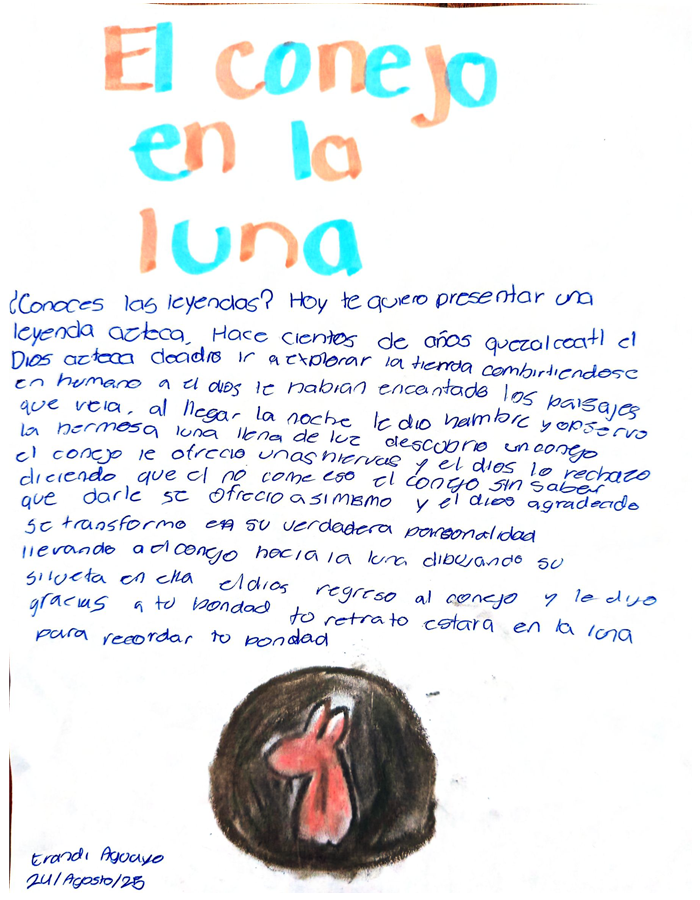 El conejo
en la
luna
¿Conoces las leyendas? Hoy te quiero presentar una
leyenda azteca. Hace cientos de años quezalcoatl el
Dios azteca deadio ir a explorar la tierra combirtiendose
en humano a el dios le habian encantado los paisajes
que veia, al llegar la noche le dio hambre y observo
la hermosa luna llena de luz descubrio un conejo
el conejo le ofrecio unas hiervas y el dios lo rechazo
diciendo que el no come eso el conejo sin saber
que darle se ofrecio asimismo y el dios agradecido
se transformo en su verdadera personalidad
llevando a el conejo hacia la luna dibujando su
silueta en ella el dios regreso al conejo y le dijo
gracias a tu bondad tu retrato estara en la luna
para recordar tu bondad
Erandi Aguayo
24/Agosto/25